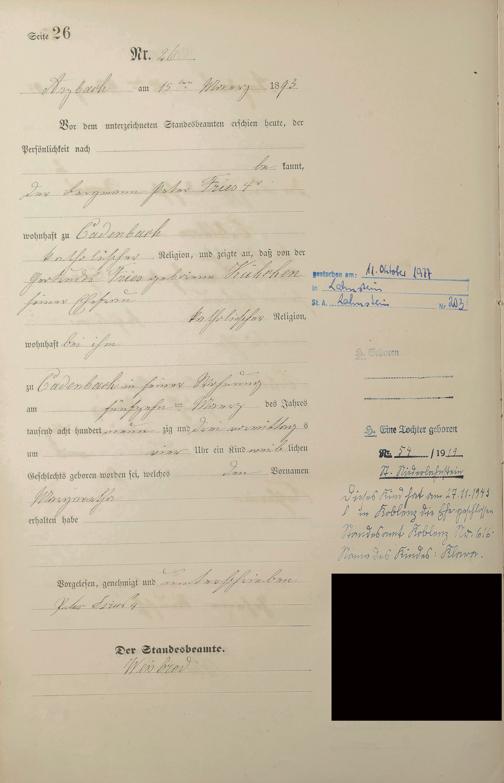 Seite 26
Nr. 26
Arzbach am 15ten Maerz 1893.
Vor dem unterzeichneten Standesbeamten erschien heute, der
Persönlichkeit nach
be kannt,
der Bergmann Peter Fries 4r
wohnhaft zu Cadenbach
katholischer Religion, und zeigte an, daß von der
Gertrude Fries geborene Kühchen
seiner Ehefrau
katholischer Religion,
wohnhaft bei ihm
zu Cadenbach in seiner Wohnung
am fünfzehn = Maerz des Jahres
tausend acht hundert neun zig und drei vormittags
um vier Uhr ein Kind weib lichen
Geschlechts geboren worden sei, welches den Vornamen
Margaretha
erhalten habe
Vorgelesen, genehmigt und unterschrieben
Peter Fries 4
Der Standesbeamte.
Weisbrod
gestorben am: 11. Oktober 1977
in Lahnstein
St. A. Lahnstein Nr. 203
H. Geboren
H. Eine Tochter geboren
Nr. 54 /1919
St. Niederlahnstein
Dieses Kind hat am 27.11.1943
in Koblenz die Ehe geschlossen
Standesamt Koblenz Nr. 616
Name des Kindes: Klara.